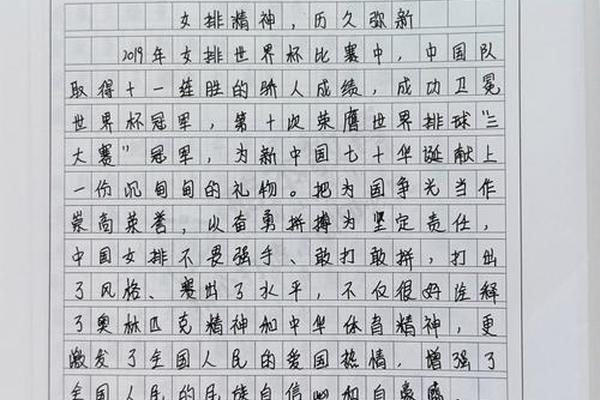 女排精神，历久弥新
2019年女排世界杯比赛中，中国队
取得十一连胜的骄人成绩，成功卫冕
世界杯冠军，第十次荣膺世界排球“三
大赛”冠军，为新中国七十华诞献上
一份沉甸甸的礼物。把为国争光当作
崇高荣誉，以奋勇拼搏为坚定责任，
中国女排不畏强手、敢打敢拼，打出
了风格、赛出了水平，不仅很好诠释
了奥林匹克精神和中华体育精神，更
激发了全国人民的爱国热情，增强了
全国人民的民族自信心和自豪感。